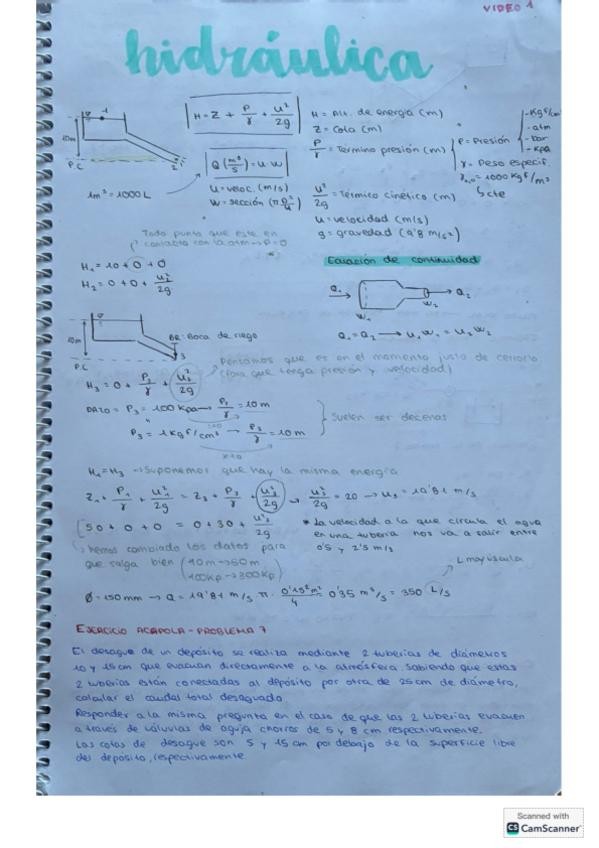 VIDEO 1
hidráulica
H = Z + P/γ + u²/2g
H = Alt. de energía (m)
Z = Cota (m)
P/γ = Término presión (m)
P = Presión
- atm
- bar
- kPa
γ = Peso específ.
γH₂O = 1000 kgf/m³
cte
Q (m³/s) = u · w
u = veloc. (m/s)
w = sección (π D²/4)
1m³ = 1000 L
10m
P.C.
u²/2g = Término cinético (m)
u = velocidad (m/s)
g = gravedad (9'8 m/s²)
Todo punto que esté en
contacto con la atm → P = 0
H₁ = 10 + 0 + 0
H₂ = 0 + 0 + u₂²/2g
Ecuación de continuidad
Q₁ → Q₂
W₁ W₂
Q₁ = Q₂ → u₁ W₁ = u₂ W₂
10m
P.C.
BR: Boca de riego
3
Pensamos que es en el momento justo de cerrarlo
(para que tenga presión y velocidad)
H₃ = 0 + P₃/γ + u₃²/2g
DATO = P₃ = 100 kPa → P₃/γ = 10 m
P₃ = 1 kgf/cm² → P₃/γ = 10 m
Suelen ser decenas
H₁ = H₃ → Suponemos que hay la misma energía
Z₁ + P₁/γ + u₁²/2g = Z₃ + P₃/γ + u₃²/2g → u₃²/2g = 20 → u₃ = 19'81 m/s
50 + 0 + 0 = 0 + 30 + u₃²/2g
* La velocidad a la que circula el agua
en una tubería nos va a salir entre
0'5 y 2'5 m/s
hemos cambiado los datos para
que salga bien (10m → 50m
100kp → 300kp)
L mayúscula
Ø = 150 mm → Q = 19'81 m/s π · 0'15² m²/4 = 0'35 m³/s = 350 L/s
EJERCICIO ACAPOLA - PROBLEMA 7
El desagüe de un depósito se realiza mediante 2 tuberías de diámetros
10 y 15 cm que evacuan directamente a la atmósfera. Sabiendo que estas
2 tuberías están conectadas al depósito por otra de 25 cm de diámetro,
calcular el caudal total desaguado.
Responder a la misma pregunta en el caso de que las 2 tuberías evacuen
a través de válvulas de aguja chorros de 5 y 8 cm respectivamente.
Las cotas de desagüe son 5 y 15 cm por debajo de la superficie libre
del depósito, respectivamente
Scanned with
CS CamScanner